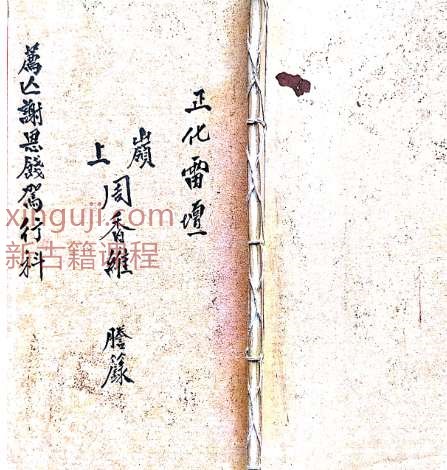 正化雷壇
嶺上周香維 謄籙
薦亡謝恩餞駕行科
xinguji.com
新古籍课程